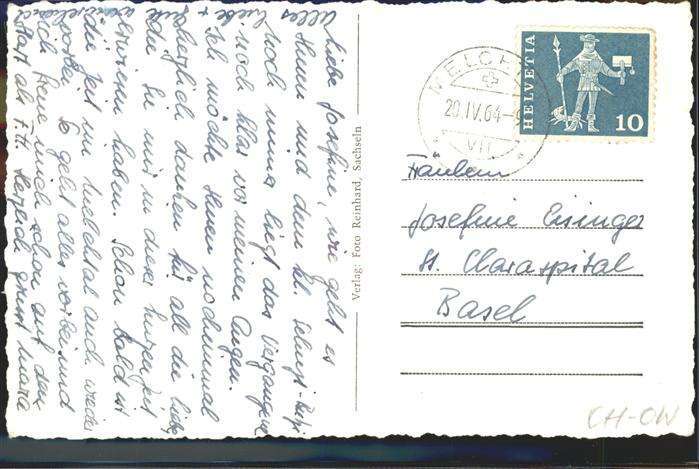 Liebe Josefine, wie geht es
Ihnen und dem kl.
noch immer liegt das Vergangene
noch klar vor meinen Augen.
Ich möchte Ihnen nocheinmal
herzlich danken für all die Liebe
die Sie mir in dieser kurzen Zeit
erwiesen haben. Schon bald ist
die Zeit im Melchtal auch wieder
vorbei. So geht alles vorbei und
ich freue mich schon auf den
Start als F.H. Herzlich grüsst Maria
Alles
Liebe +
Verlag: Foto Reinhard, Sachseln
MELCHTAL
20.IV.64-
VII
HELVETIA
10
Fräulein
Josefine Eisinger
St. Claraspital
Basel
CH-OW